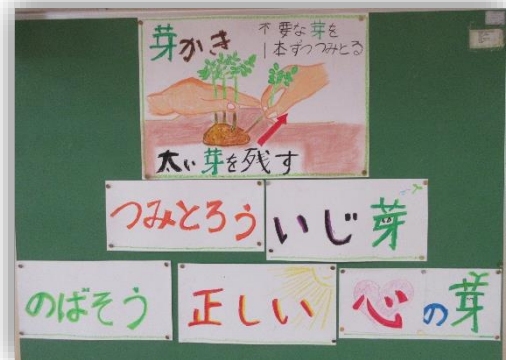 芽かき
不要な芽を
1本ずつつみとる
太い芽を残す
つみとろう いじ芽
のばそう 正しい 心の芽